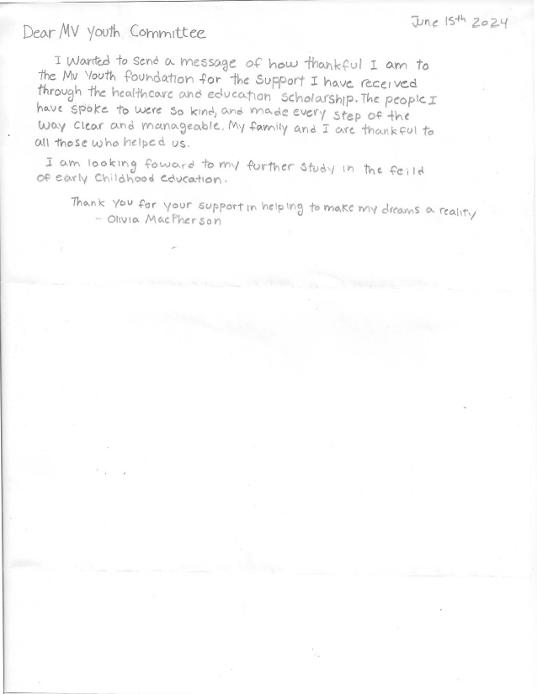 June 15th 2024
Dear MV Youth Committee
I Wanted to Send a message of how thankful I am to
the MV Youth foundation for the Support I have received
through the healthcare and education Scholarship. The people I
have spoke to were so kind, and made every step of the
way clear and manageable. My family and I are thankful to
all those who helped us.
I am looking foward to my further study in the feild
of early Childhood education.
Thank you for your support in helping to make my dreams a reality
- Olivia MacPherson